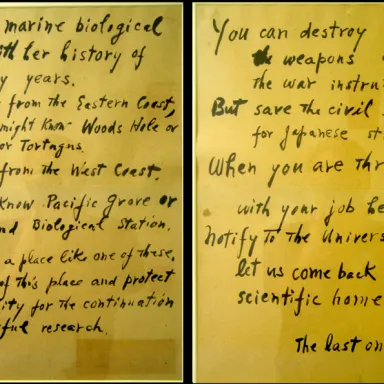 marine biological
her history of
years.
from the Eastern Coast,
might know Woods Hole or
or Tortugas.
from the West Coast,
know Pacific Grove or
Biological Station.
a place like one of these.
of this place and protect
for the continuation
research.
You can destroy
the weapons
the war
But save the civil
for Japanese
When you are
with your job
Notify to the
let us come back
scientific home
The last